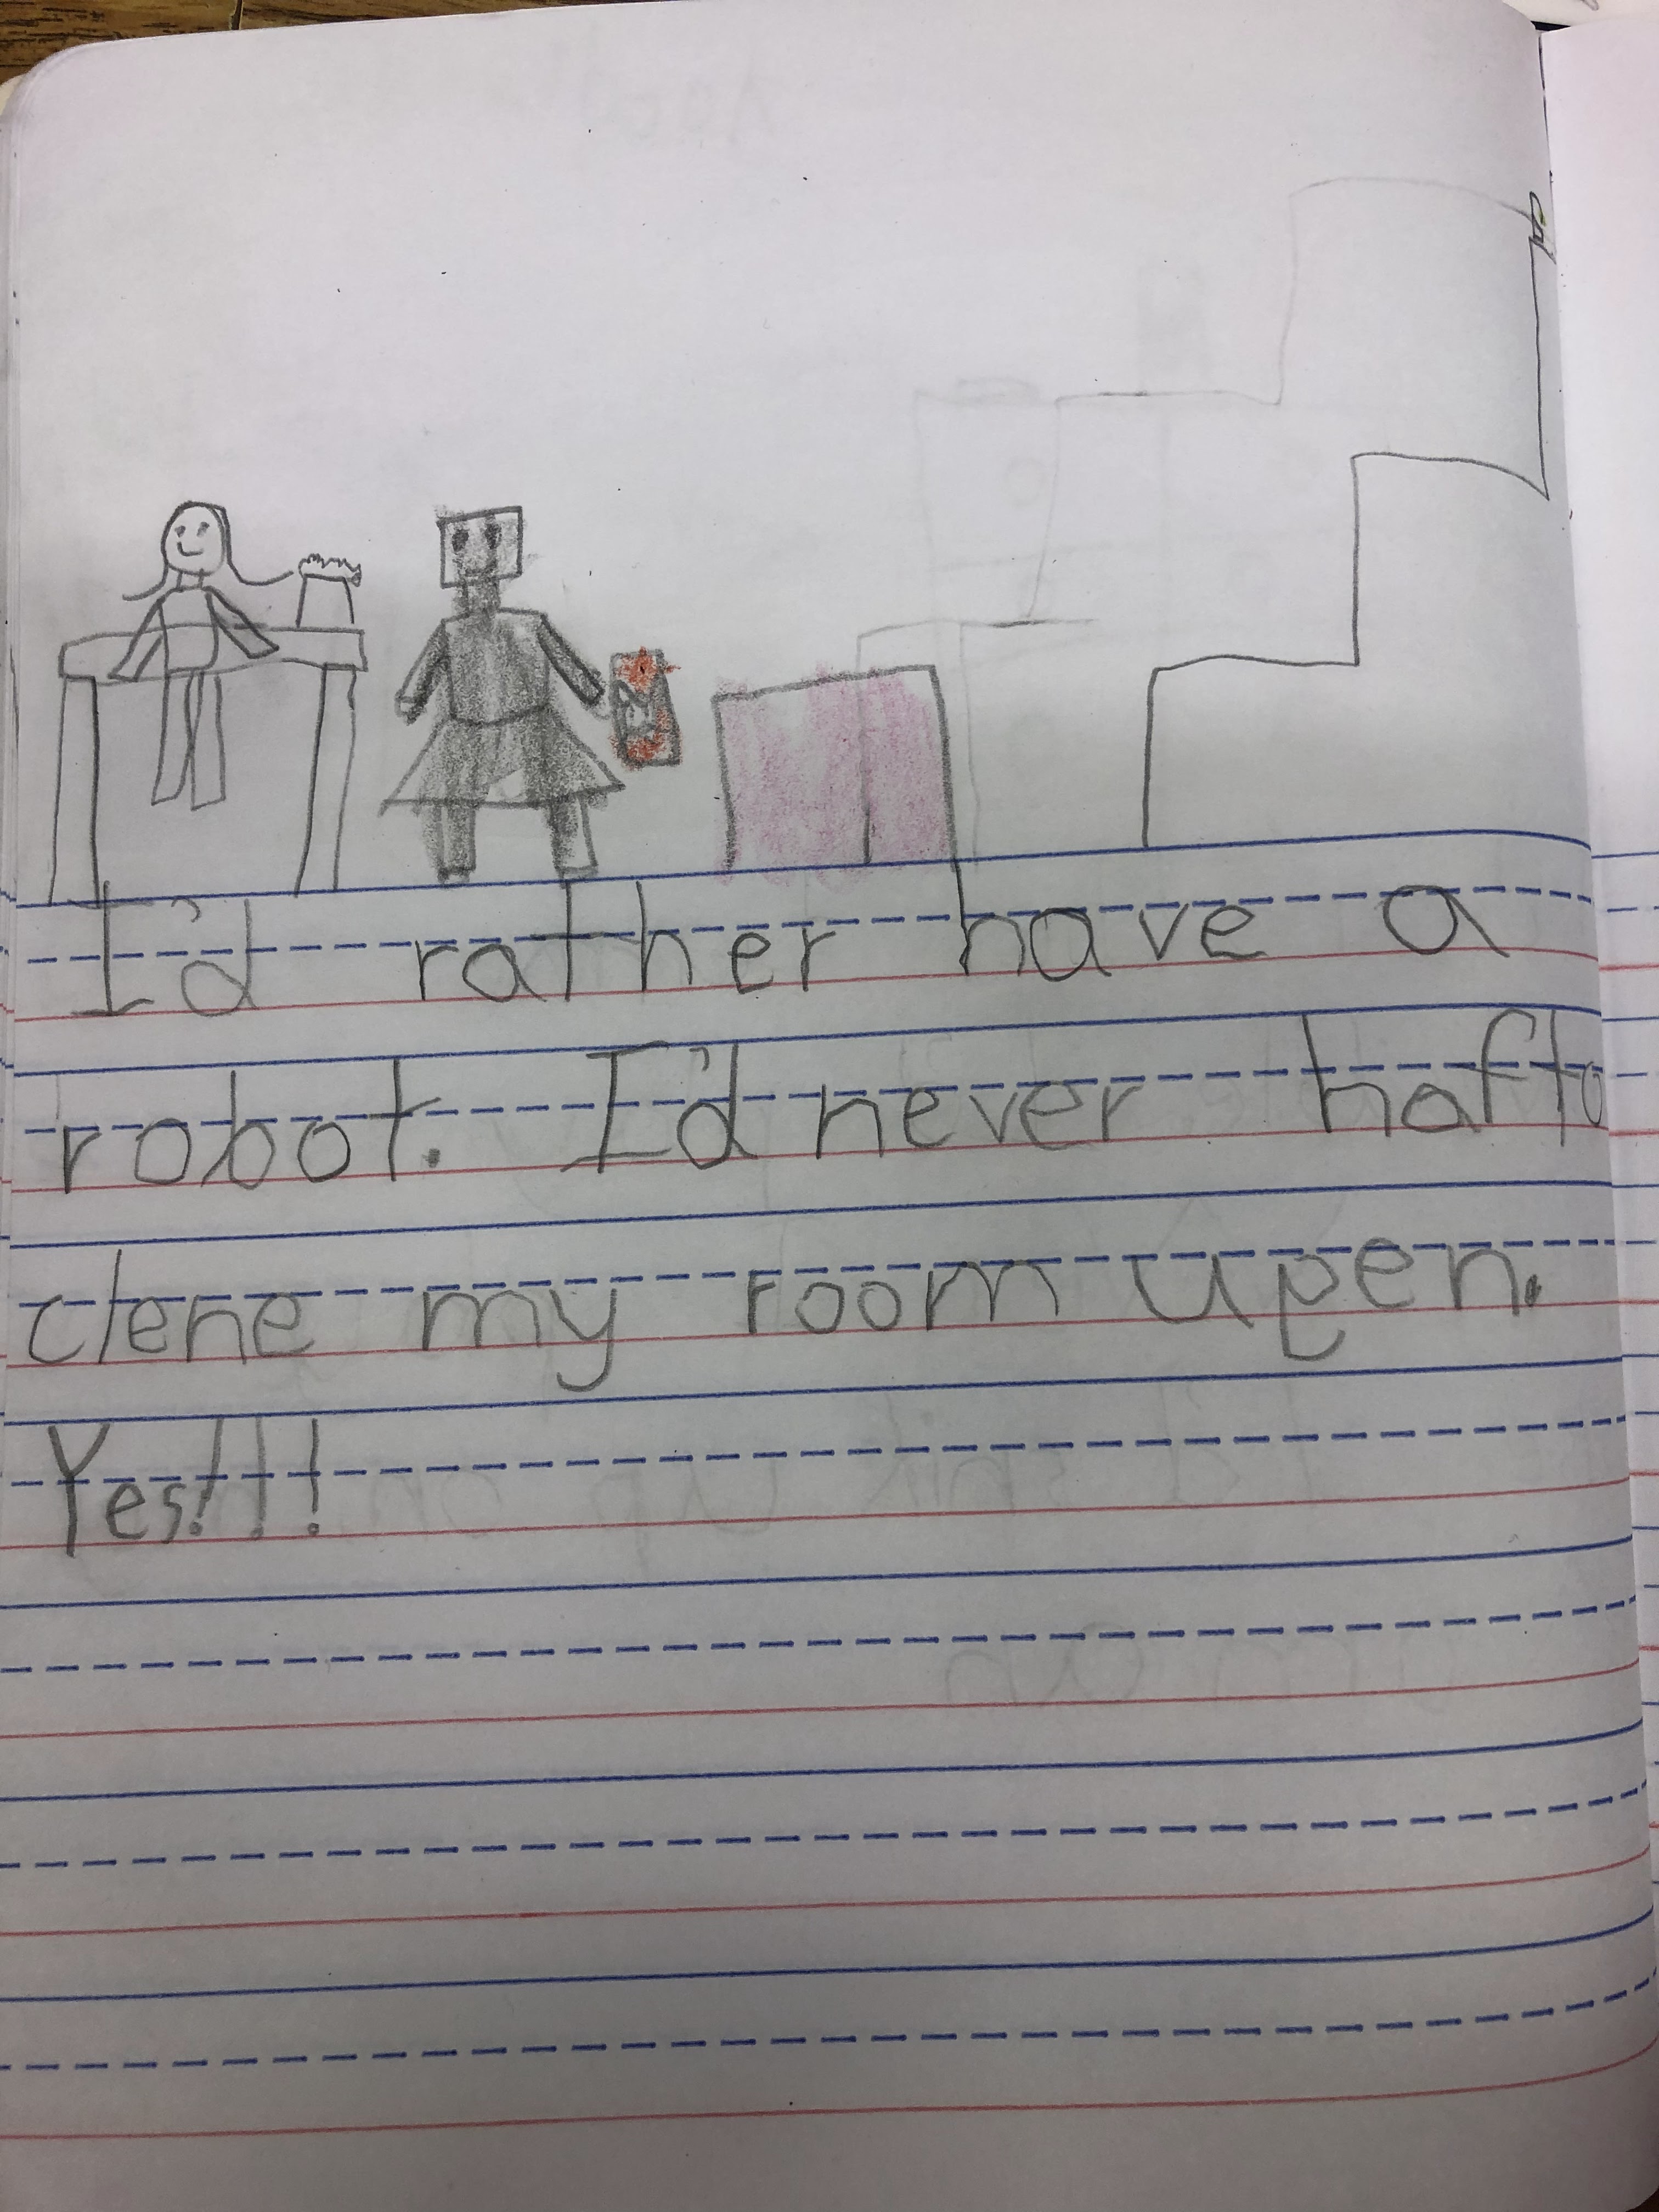 I'd rather have a
robot. I'd never hafto
clene my room upen.
Yes!!!